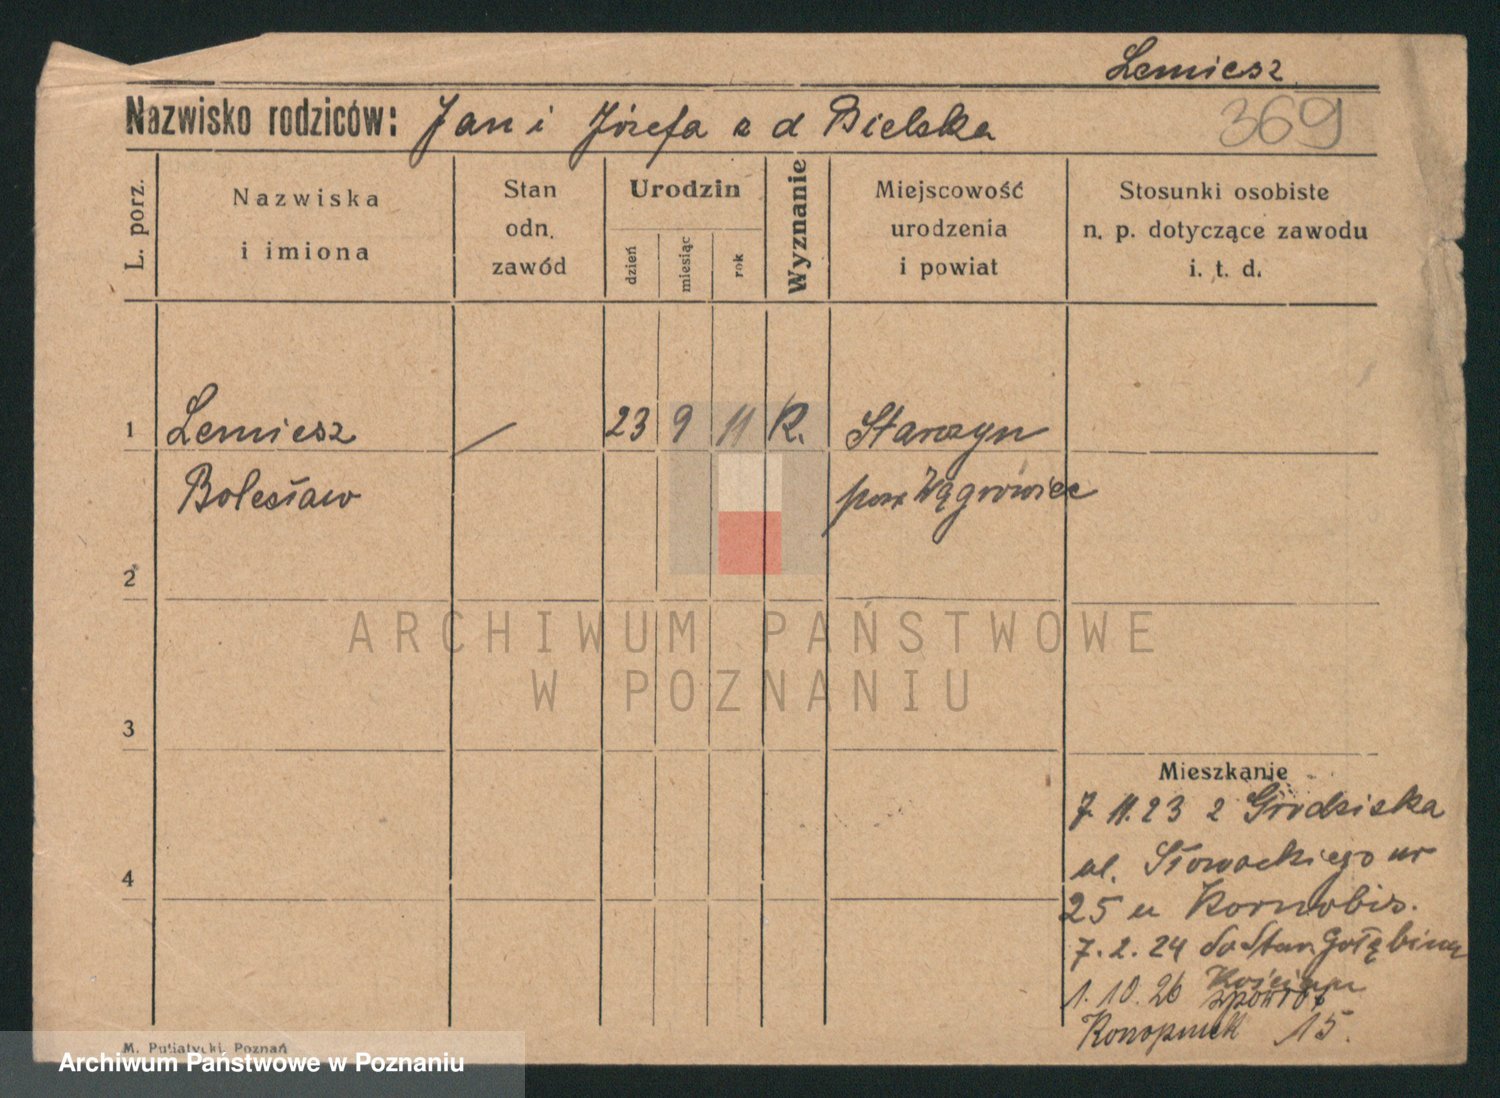 Lemiesz
Nazwisko rodziców: Jan i Józefa z d Bielska
369
L. porz.
Nazwiska
i imiona
Stan
odn.
zawód
Urodzin
dzień
miesiąc
rok
Wyznanie
Miejscowość
urodzenia
i powiat
Stosunki osobiste
n. p. dotyczące zawodu
i. t. d.
1 Lemiesz / 23 9 11 R. Starczyn
Bolesław pow Wągrówiec
2
ARCHIWUM PAŃSTWOWE
W POZNANIU
3
Mieszkanie
7 11.23 z Grodziska
4
ul. Słowackiego nr
25 u
7.2.24 do Star. Gołębina
1.10.26 Kościan
zpowrot
15.
M. Putiatycki, Poznań
Archiwum Państwowe w Poznaniu